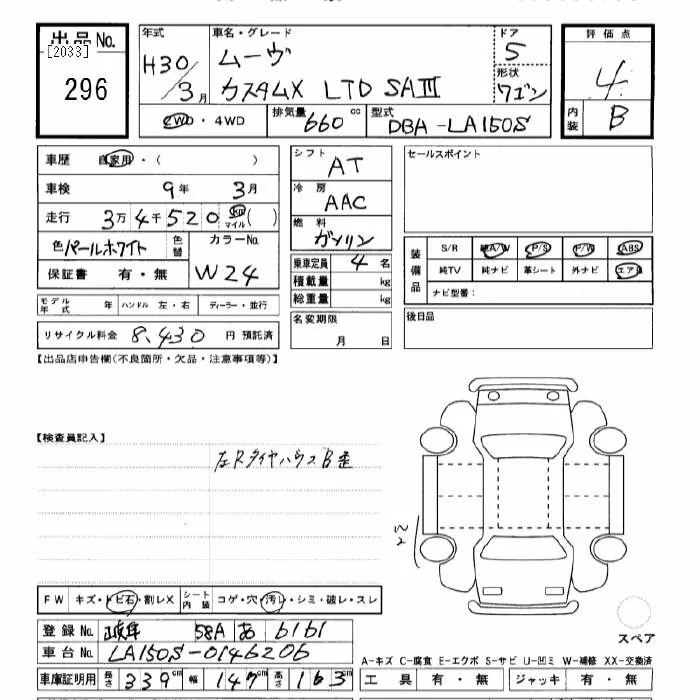 出品No.
[2033]
296
年式 H30/3月
車名・グレード
ムーヴ
カスタムX LTD SAⅢ
ドア 5
形状 ワゴン
2WD・4WD
排気量 660 cc
型式 DBA-LA150S
評価点 4
内装 B
車歴 自家用・( )
車検 9年 3月
走行 3万4千520 km マイル( )
色 パールホワイト 色替
カラーNo. W24
保証書 有・無
モデル年式 年 ハンドル 左・右 ディーラー・並行
リサイクル料金 8,430 円 預託済
シフト AT
冷房 AAC
燃料 ガソリン
乗車定員 4 名
積載量 kg
総重量 kg
名変期限 月 日
セールスポイント
装備品
S/R 純A/W P/S P/W ABS
純TV 純ナビ 革シート 外ナビ エアB
ナビ型番:
後日品
【出品店申告欄(不良箇所・欠品・注意事項等)】
【検査員記入】
左RタイヤハウスB歪
W2
FW キズ・トビ石・割レX
シート内装 コゲ・穴・汚レ・シミ・破レ・スレ
登録No. 岐阜 58A あ 6161
車台No. LA150S-0146206
車庫証明用 長さ 339cm 幅 147cm 高さ 163cm
スペア
A-キズ C-腐食 E-エクボ S-サビ U-凹ミ W-補修 XX-交換済
工具 有・無 ジャッキ 有・無